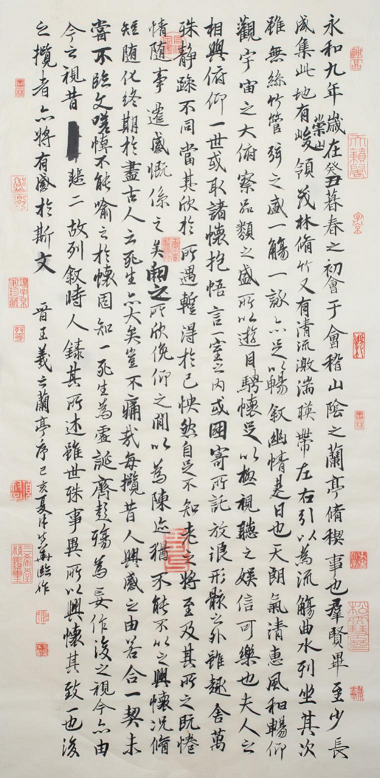 永和九年歲在癸丑暮春之初會于會稽山陰之蘭亭脩稧事也羣賢畢至少長
咸集此地有崇山峻領茂林脩竹又有清流激湍暎帶左右引以為流觴曲水列坐其次
雖無絲竹管弦之盛一觴一詠亦足以暢敘幽情是日也天朗氣清惠風和暢仰
觀宇宙之大俯察品類之盛所以遊目騁懷足以極視聽之娛信可樂也夫人之
相與俯仰一世或取諸懷抱悟言一室之內或因寄所託放浪形骸之外雖趣舍萬
殊靜躁不同當其欣於所遇蹔得於己怏然自足不知老之將至及其所之既惓
情隨事遷感慨係之矣向之所欣俛仰之閒以為陳迹猶不能不以之興懷況脩
短隨化終期於盡古人云死生亦大矣豈不痛哉每攬昔人興感之由若合一契未
嘗不臨文嗟悼不能喻之於懷固知一死生為虛誕齊彭殤為妄作後之視今亦由
今之視昔故列敘時人錄其所述雖世殊事異所以興懷其致一也後
之攬者亦將有感於斯文 晉王羲之蘭亭序己亥夏月臨作